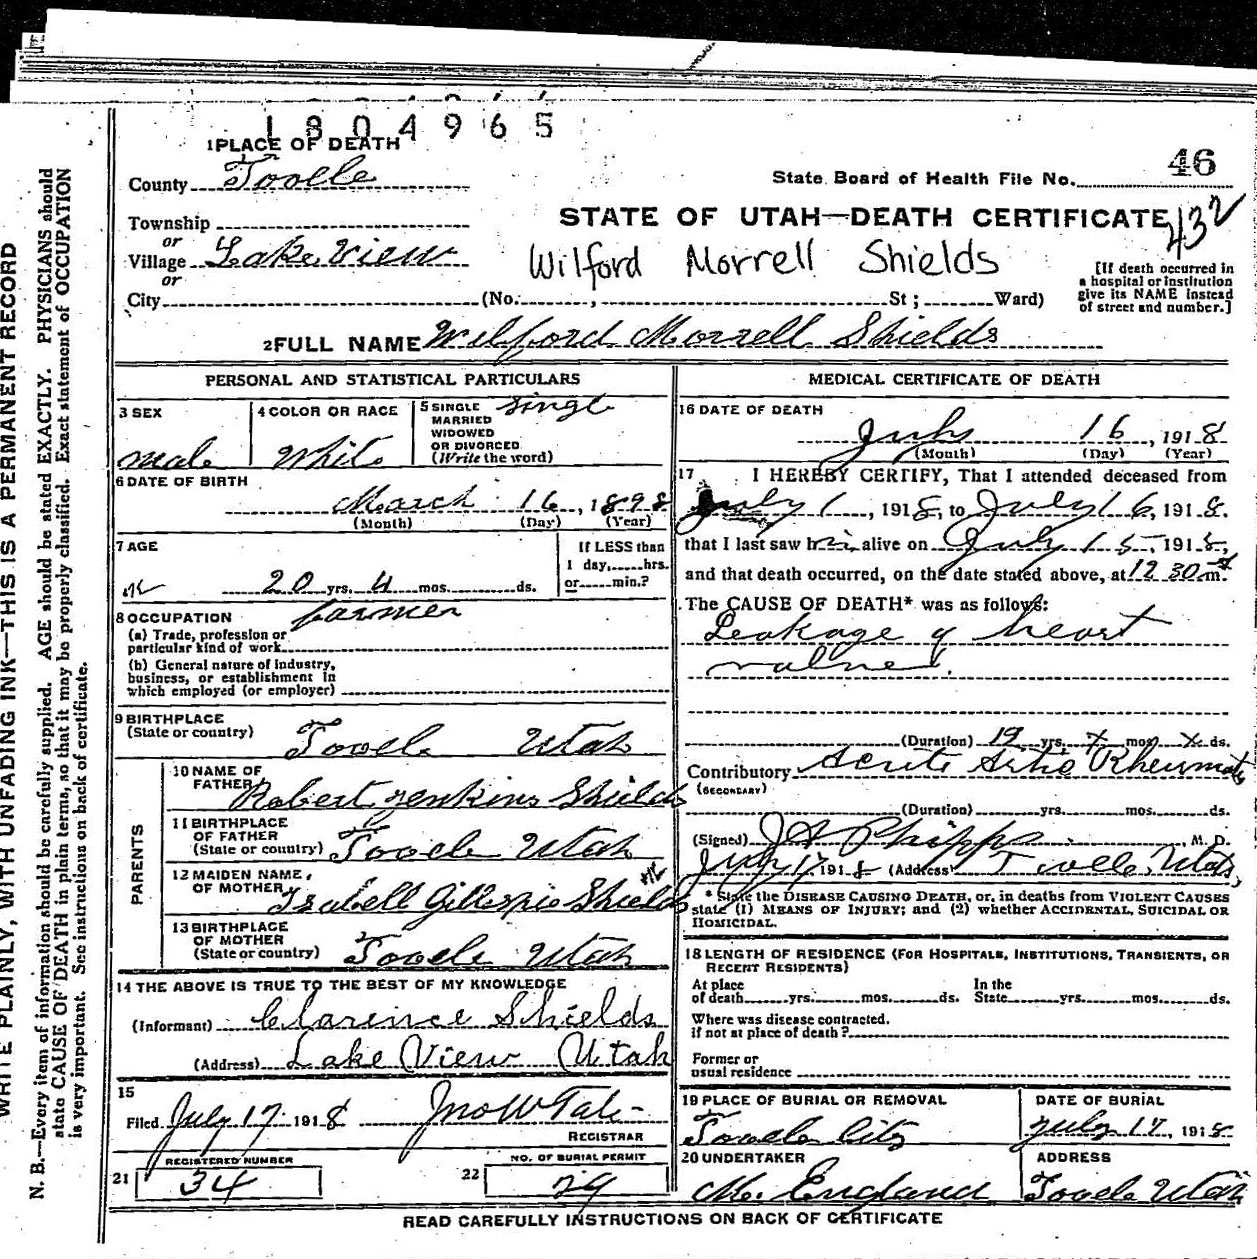 1804965
1 PLACE OF DEATH
County Tooele
State Board of Health File No. 46
Township
or
Village Lake View
or
City (No. , St ; Ward)
STATE OF UTAH—DEATH CERTIFICATE 432
Wilford Morrell Shields
[If death occurred in
a hospital or institution
give its NAME instead
of street and number.]
2 FULL NAME Wilford Morrell Shields
PERSONAL AND STATISTICAL PARTICULARS
3 SEX
male
4 COLOR OR RACE
White
5 SINGLE
MARRIED
WIDOWED
OR DIVORCED
(Write the word)
Single
6 DATE OF BIRTH
March 16, 1898
(Month) (Day) (Year)
7 AGE
20 yrs. 4 mos. ds.
If LESS than
1 day, hrs.
or min.?
8 OCCUPATION farmer
(a) Trade, profession or
particular kind of work
(b) General nature of industry,
business, or establishment in
which employed (or employer)
9 BIRTHPLACE
(State or country) Tooele Utah
PARENTS
10 NAME OF
FATHER Robert Jenkins Shields
11 BIRTHPLACE
OF FATHER
(State or country) Tooele Utah
12 MAIDEN NAME
OF MOTHER Isabell Gillespie Shields
13 BIRTHPLACE
OF MOTHER
(State or country) Tooele Utah
14 THE ABOVE IS TRUE TO THE BEST OF MY KNOWLEDGE
(Informant) Clarence Shields
(Address) Lake View Utah
15
Filed July 17 1918 Jno W Tate
REGISTRAR
21 REGISTERED NUMBER
34
22 NO. OF BURIAL PERMIT
29
MEDICAL CERTIFICATE OF DEATH
16 DATE OF DEATH
July 16, 1918
(Month) (Day) (Year)
17 I HEREBY CERTIFY, That I attended deceased from
July 1, 1918, to July 16, 1918.
that I last saw him alive on July 15, 1918,
and that death occurred, on the date stated above, at 12 30 m.
The CAUSE OF DEATH* was as follows:
Leakage of heart
valves.
(Duration) 19 yrs. x mos. x ds.
Contributory Acute Rheumat
(SECONDARY)
(Duration) yrs. mos. ds.
(Signed) J A Phipps, M. D.
July 17, 1918 (Address) Tooele, Utah,
* State the DISEASE CAUSING DEATH, or, in deaths from VIOLENT CAUSES
state (1) MEANS OF INJURY; and (2) whether ACCIDENTAL, SUICIDAL OR
HOMICIDAL.
18 LENGTH OF RESIDENCE (FOR HOSPITALS, INSTITUTIONS, TRANSIENTS, OR
RECENT RESIDENTS)
At place
of death yrs. mos. ds.
In the
State yrs. mos. ds.
Where was disease contracted.
if not at place of death?
Former or
usual residence
19 PLACE OF BURIAL OR REMOVAL
Tooele City
DATE OF BURIAL
July 17, 1918
20 UNDERTAKER
M. England
ADDRESS
Tooele Utah
READ CAREFULLY INSTRUCTIONS ON BACK OF CERTIFICATE
WRITE PLAINLY, WITH UNFADING INK—THIS IS A PERMANENT RECORD
N. B.—Every item of information should be carefully supplied. AGE should be stated EXACTLY. PHYSICIANS should
state CAUSE OF DEATH in plain terms, so that it may be properly classified. Exact statement of OCCUPATION
is very important. See instructions on back of certificate.